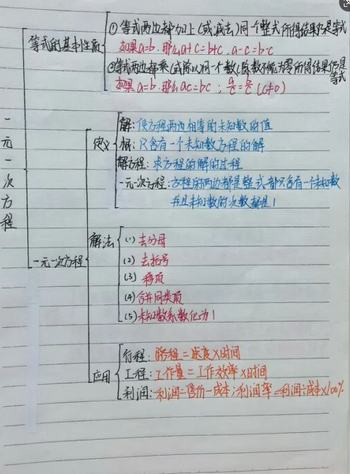 一元一次方程
等式的基本性质
① 等式两边都加上(或减去)同一个整式所得结果仍是等式
如果a=b.那么a+c=b+c.a-c=b-c
②等式两边都乘(或除以)同一个数(除数不能为零)所得结果仍是等式
如果a=b.那么ac=bc;a/c=b/c(c≠0)
一元一次方程
定义
解:使方程两边相等的未知数的值
根:只含有一个未知数方程的解
解方程:求方程的解的过程
一元一次方程:方程的两边都是整式都只含有一个未知数
并且未知数的次数都是1
解法
(1) 去分母
(2) 去括号
(3) 移项
(4) 合并同类项
(5) 未知数系数化为1
应用
行程:路程=速度×时间
工程:工作量=工作效率×时间
利润:利润=售价-成本;利润率=利润÷成本×100%